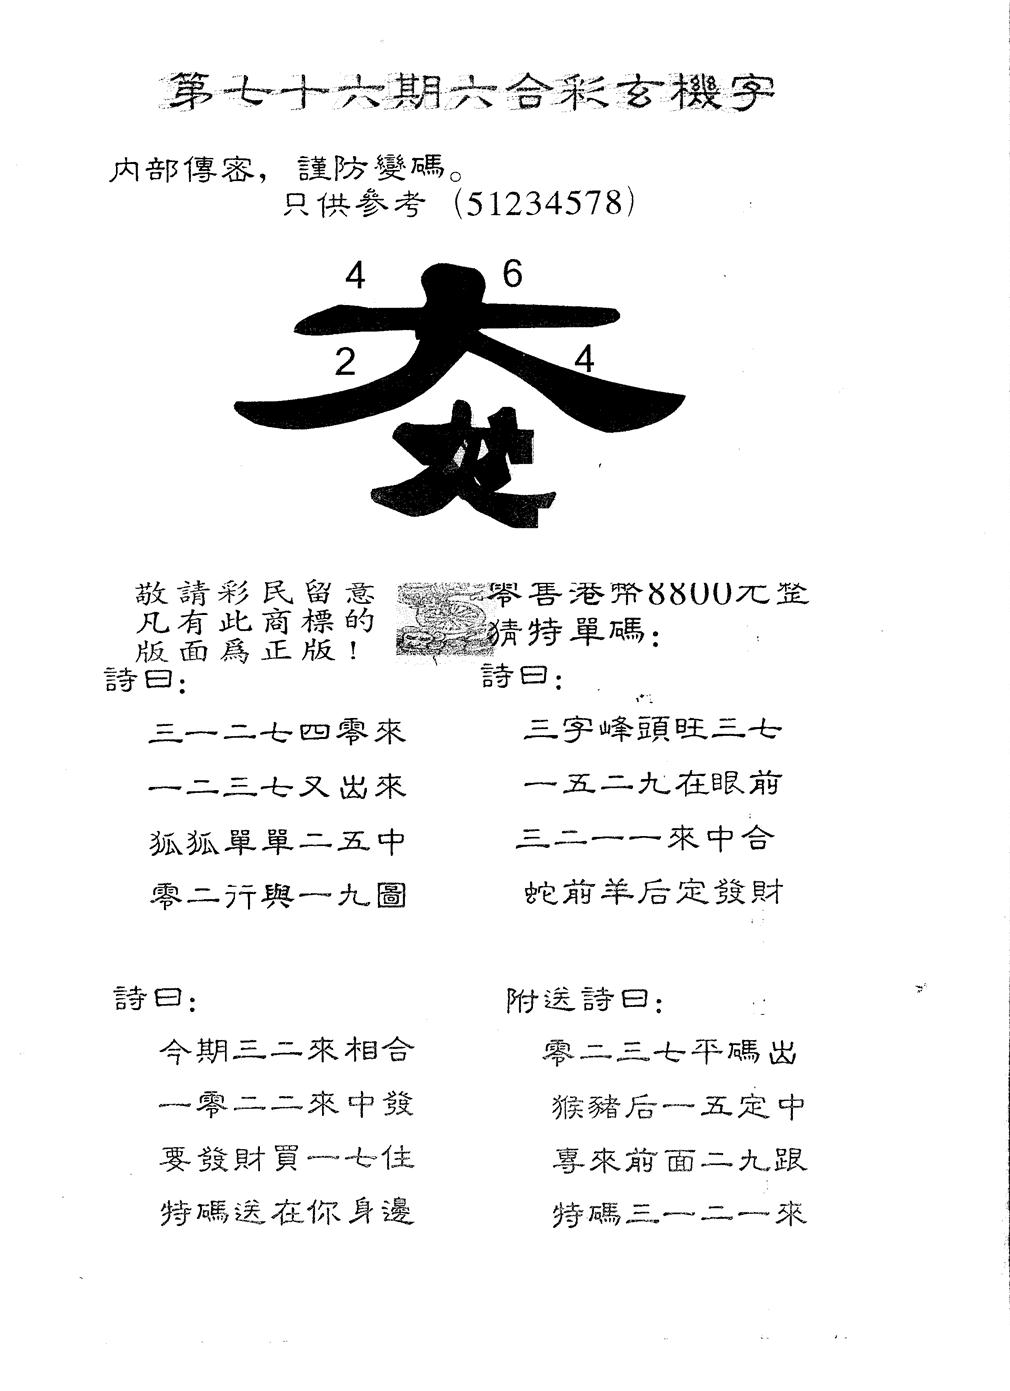 第七十六期六合彩玄機字
內部傳密，謹防變碼。
只供參考（51234578）
4 6
2 4
敬請彩民留意
凡有此商標的
版面爲正版！
零售港幣8800元整
猜特單碼：
詩曰：
三一二七四零來
一二三七又出來
狐狐單單二五中
零二行與一九圖
詩曰：
三字峰頭旺三七
一五二九在眼前
三二一一來中合
蛇前羊后定發財
詩曰：
今期三二來相合
一零二二來中發
要發財買一七住
特碼送在你身邊
附送詩曰：
零二三七平碼出
猴豬后一五定中
專來前面二九跟
特碼三一二一來